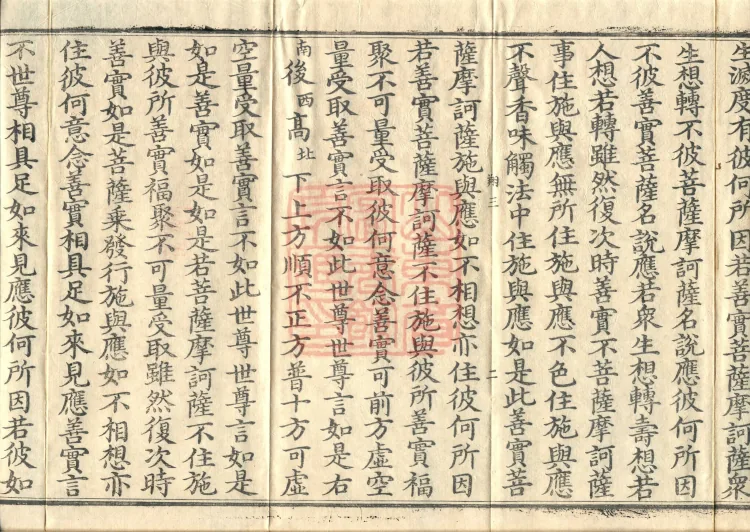 生滅度有彼何所因若善實菩薩摩訶薩衆
生想轉不彼菩薩摩訶薩名說應彼何所因
不彼善實菩薩名說應若衆生想轉壽想若
人想若轉雖然復次時善實不菩薩摩訶薩
事住施與應無所住施與應不色住施與應
不聲香味觸法中住施與應如是此善實菩
翔三
二
薩摩訶薩施與應如不相想亦住彼何所因
若善實菩薩摩訶薩不住施與彼所善實福
聚不可量受取彼何意念善實可前方虛空
量受取善實言不如此世尊世尊言如是右
南後西高北下上方順不正方普十方可虛
空量受取善實言不如此世尊世尊言如是
如是善實如是如是若菩薩摩訶薩不住施
與彼所善實福聚不可量受取雖然復次時
善實如是菩薩乘發行施與應如不相想亦
住彼何意念善實相具足如來見應善實言
不世尊相具足如來見應彼何所因若彼如